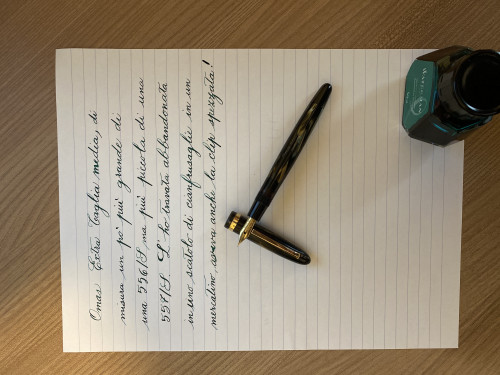 Omas Extra taglia media, di
misura un po' più grande di
una 556/S ma più piccola di una
557/S. L'ho trovata abbandonata
in uno scatolo di cianfrusaglie in un
mercatino, aveva anche la clip spezzata!